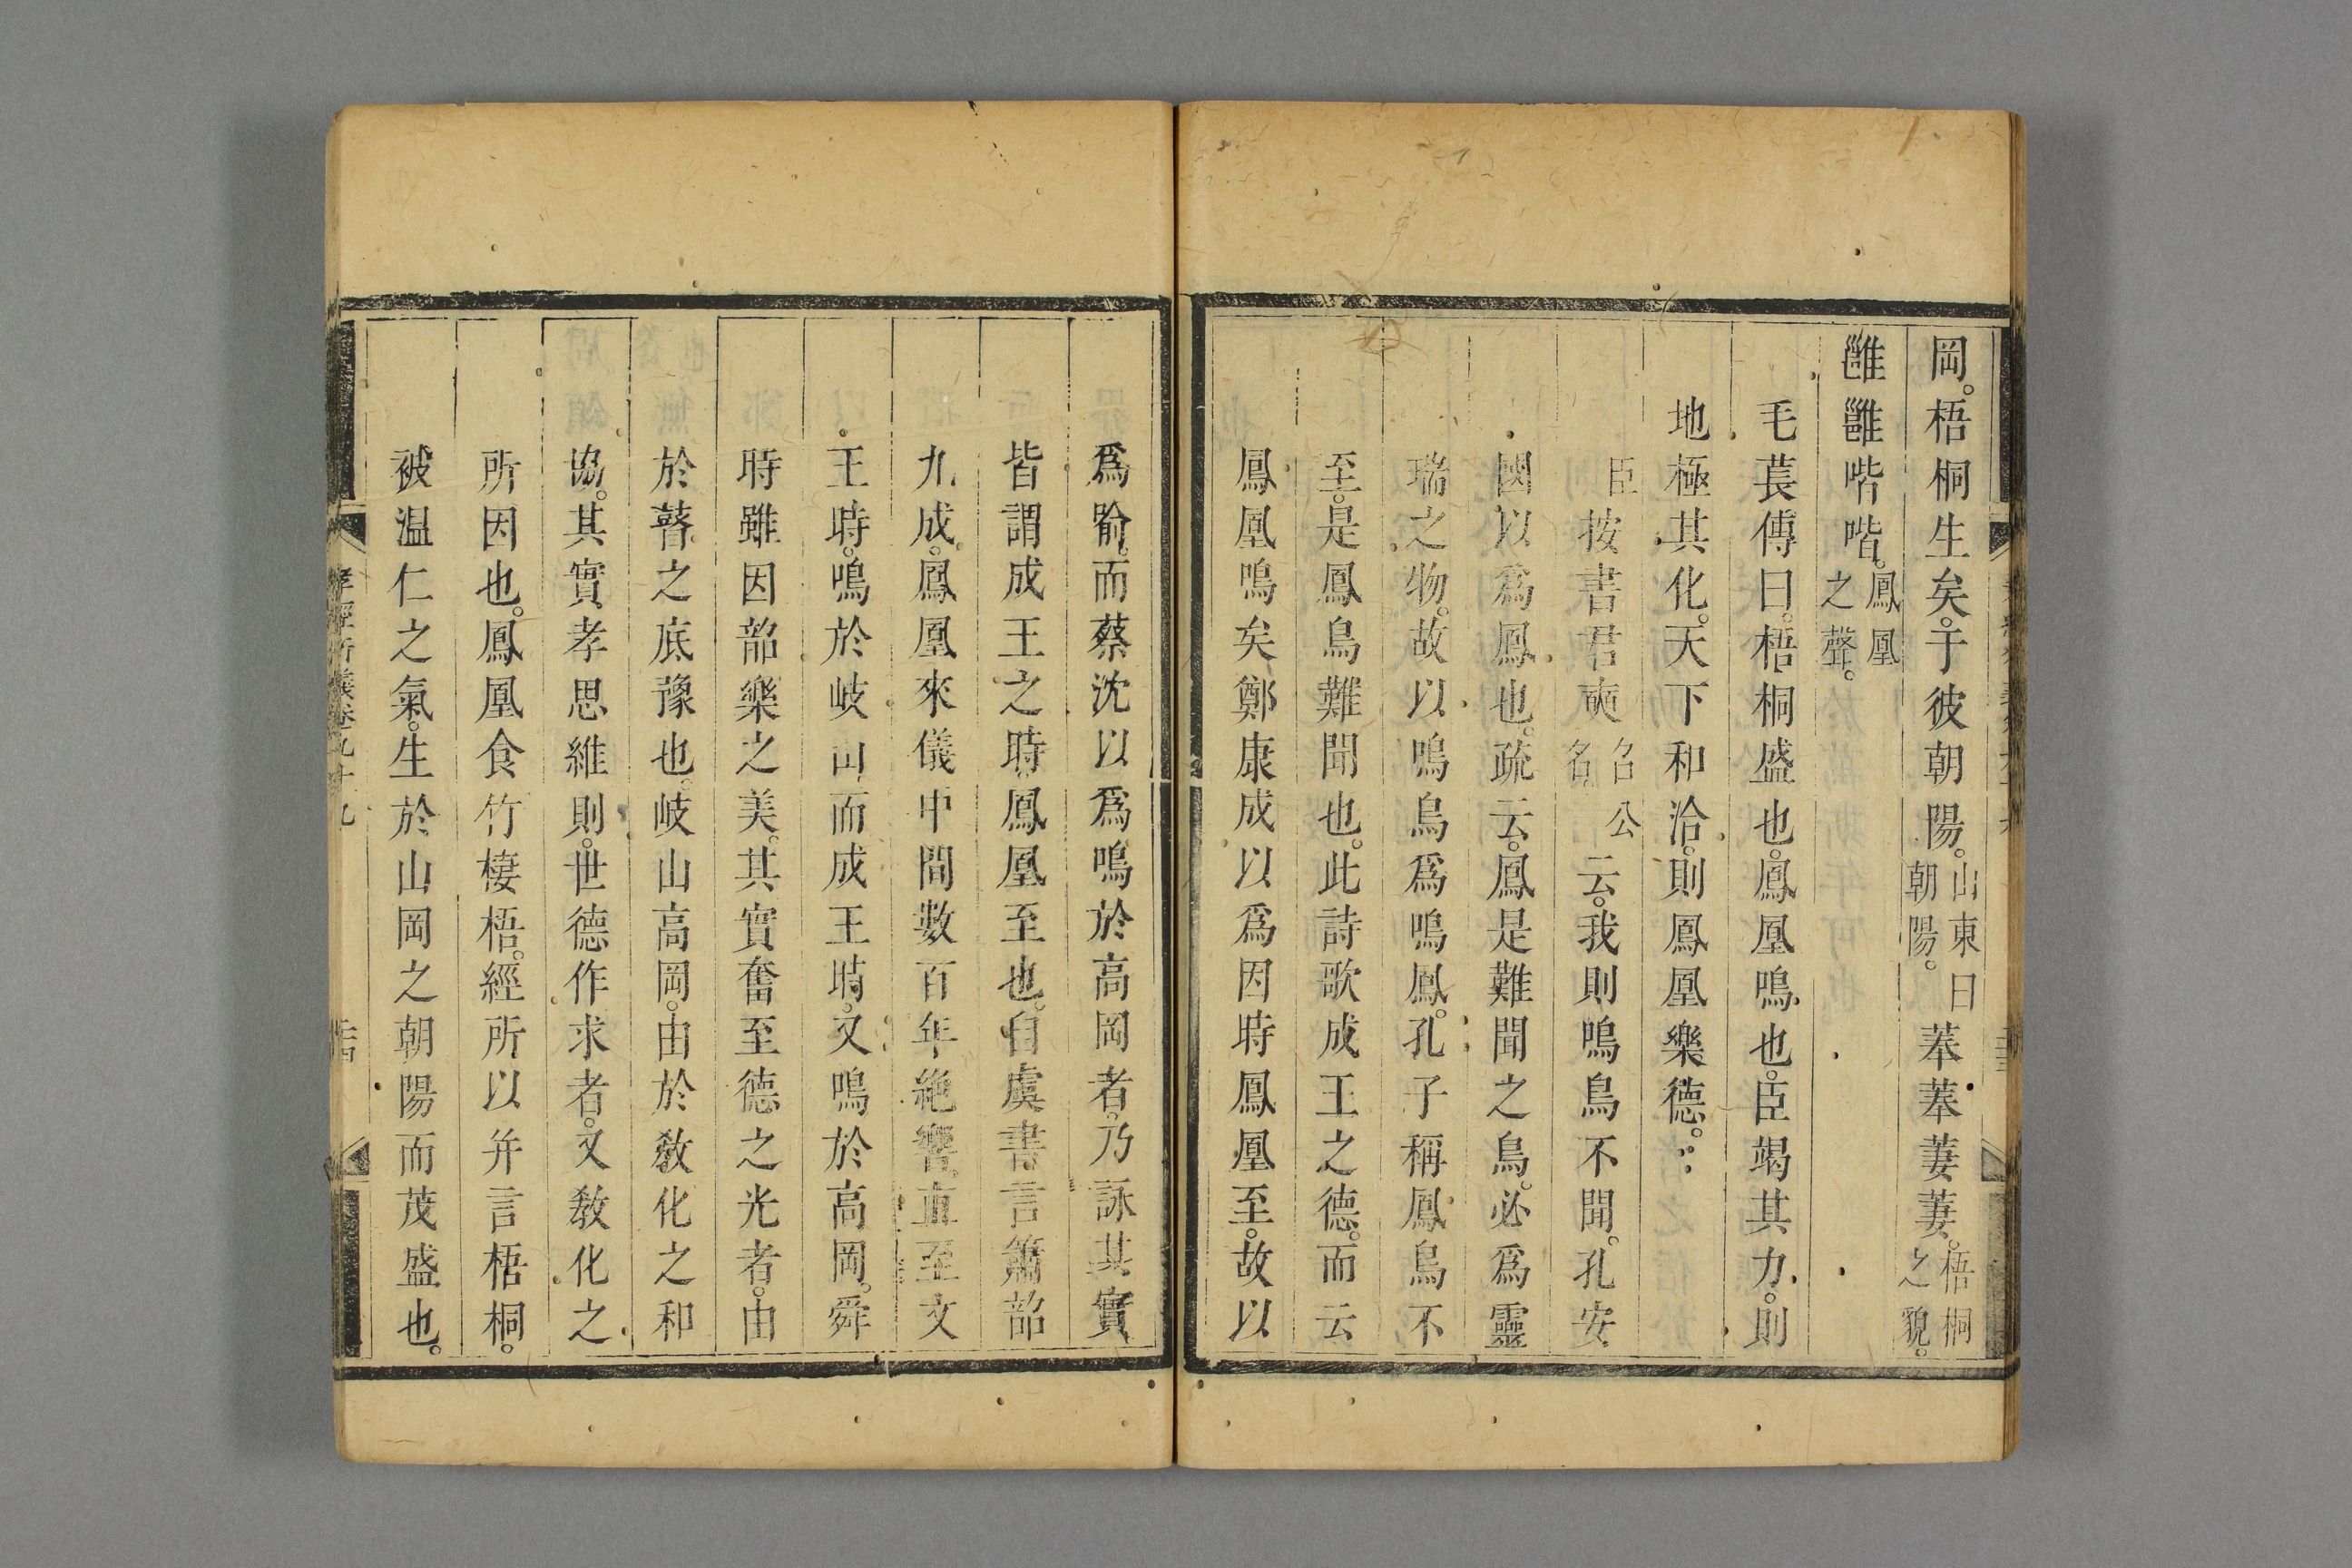 岡。梧桐生矣。于彼朝陽。山東曰朝陽。菶菶萋萋。梧桐之貌。
雝雝喈喈。鳳凰之聲。
毛萇傳曰。梧桐盛也。鳳凰鳴也。臣竭其力。則
地極其化。天下和洽。則鳳凰樂德。
臣按書君奭召公名云。我則鳴鳥不聞。孔安
國以爲鳳也。疏云。鳳是難聞之鳥。必爲靈
瑞之物。故以鳴鳥爲鳴鳳。孔子稱鳳鳥不
至。是鳳鳥難聞也。此詩歌成王之德。而云
鳳凰鳴矣鄭康成以爲因時鳳凰至。故以
爲喻。而蔡沈以爲鳴於高岡者。乃詠其實
皆謂成王之時。鳳凰至也。自虞書言簫韶
九成。鳳凰來儀中間數百年絶響。直至文
王時。鳴於岐山而成王時。又鳴於高岡。舜
時雖因韶樂之美。其實奮至德之光者。由
於瞽之底豫也。岐山高岡。由於敎化之和
協。其實孝思維則。世德作求者。又敎化之
所因也。鳳凰食竹棲梧。經所以并言梧桐。
被温仁之氣。生於山岡之朝陽而茂盛也。